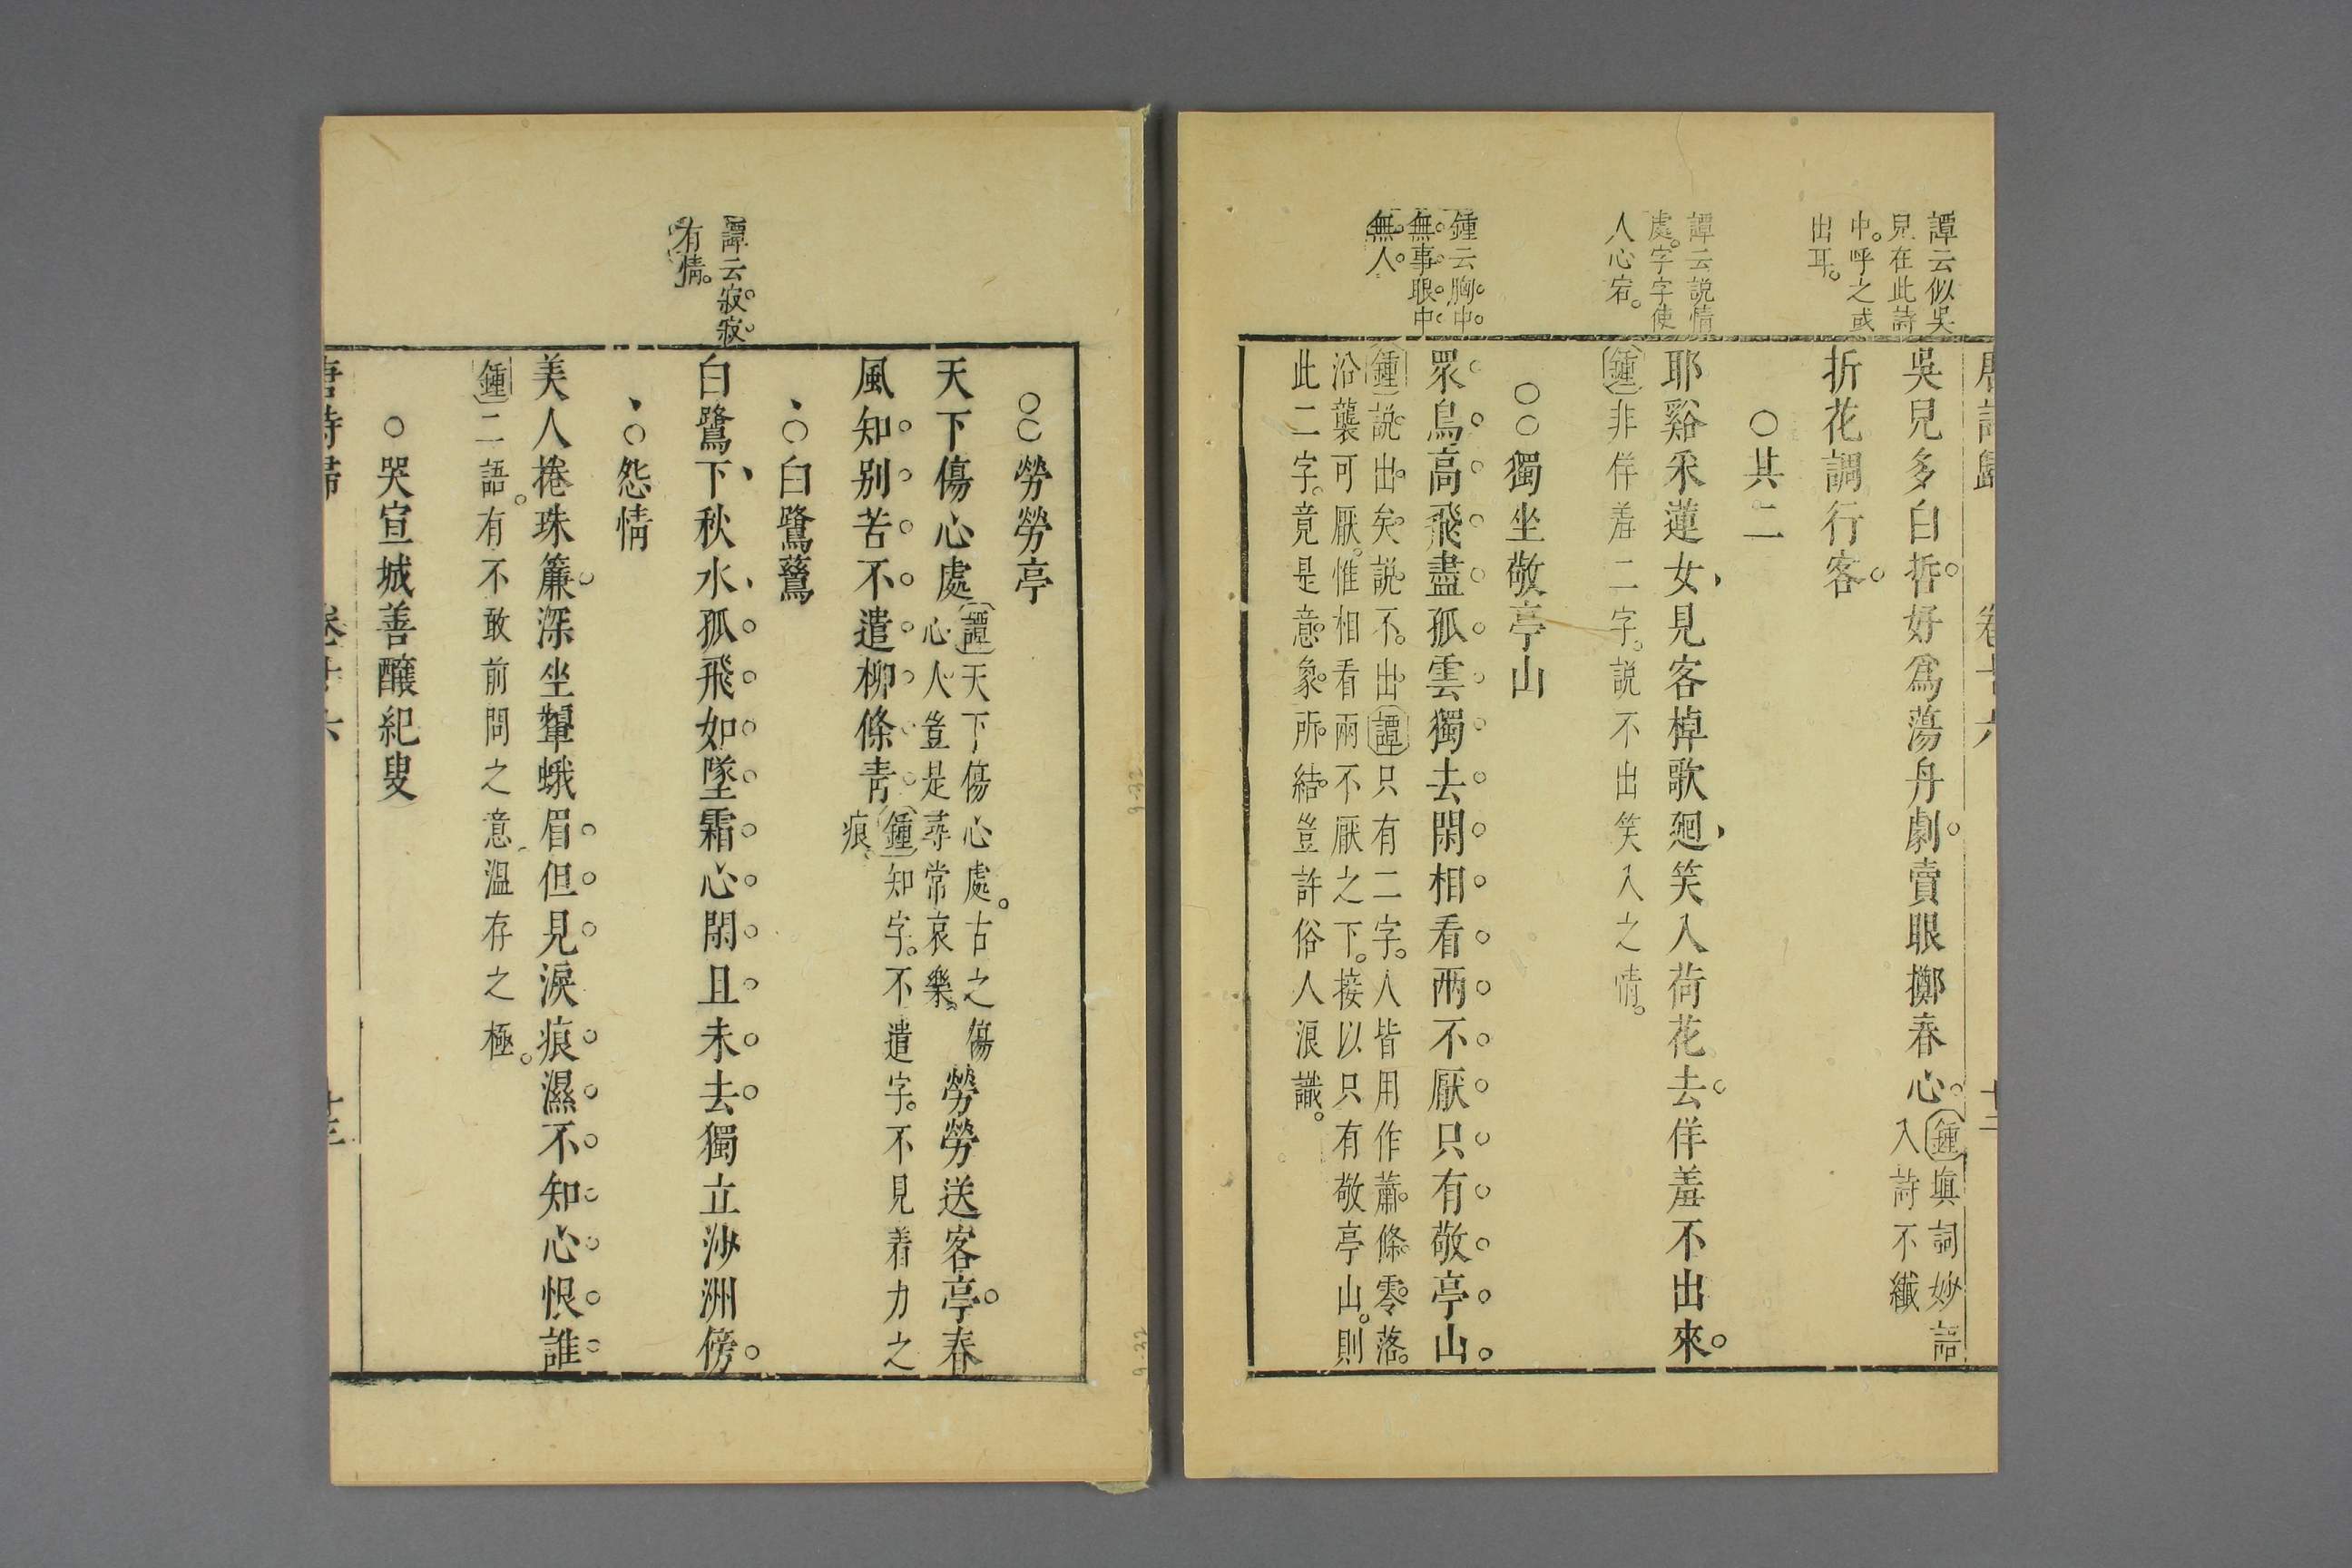 譚云似吳
兒在此詩
中。呼之或
出耳。
譚云説情
處。字字使
人心宕。
鍾云胸中
無事眼中
無人
唐詩歸 卷十六 十三
吳兒多白晳好爲蕩舟劇。賣眼擲春心。鍾填詞妙語
入詩不纖
折花調行客。
〇其二
耶谿采蓮女見客棹歌廻笑入荷花去佯羞不出來。
鍾非佯羞二字。説不出笑入之情。
〇〇獨坐敬亭山
眾鳥高飛盡孤雲獨去閑相看兩不厭只有敬亭山。
鍾説出矣説不出譚只有二字。人皆用作蕭條零落。
沿襲可厭。惟相看兩不厭之下。接以只有敬亭山。則
此二字。竟是意象所結豈許俗人浪讖。
譚云寂寂
有情。
〇〇勞勞亭
天下傷心處譚天下傷心處。古之傷
心人豈是尋常哀樂。勞勞送客亭。春
風知別苦不遣柳條青鍾知字。不遣字。不見着力之
痕
〇白鷺鷥
白鷺下秋水孤飛如墜霜心閑且未去獨立沙洲傍。
〇怨情
美人捲珠簾深坐顰蛾眉但見淚痕濕不知心恨誰
鍾二語。有不敢前問之意溫存之極。
〇哭宣城善釀紀叟
唐詩歸 卷十六 十三